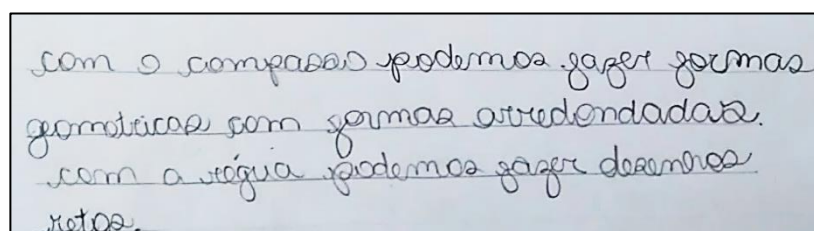 com o compasso podemos fazer formas
geometricas com formas arredondadas.
com a régua podemos fazer desenhos
retos.